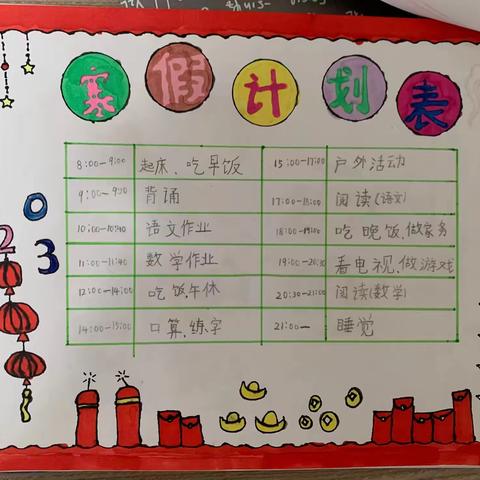 寒假计划表
8:00-9:00 起床、吃早饭 15:00-17:00 户外活动
背诵 17:00-18:00 阅读(语文)
10:00-10:40 语文作业 18:00-19:00 吃晚饭,做家务
11:00-11:40 数学作业 看电视,做游戏
12:00-14:00 吃饭,午休 20:30-21:00 阅读(数学)
14:00-15:00 口算,练字 21:00— 睡觉
0
2
3